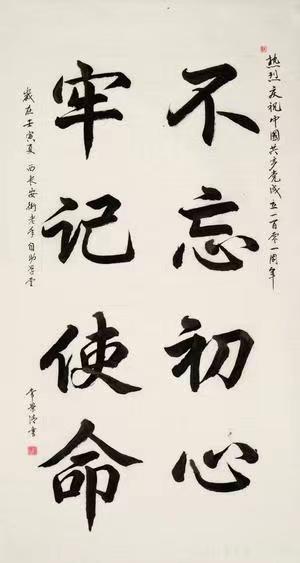 热烈庆祝中国共产党成立一百零一周年
不忘初心
牢记使命
岁在壬寅夏 西长安街老年自助学堂